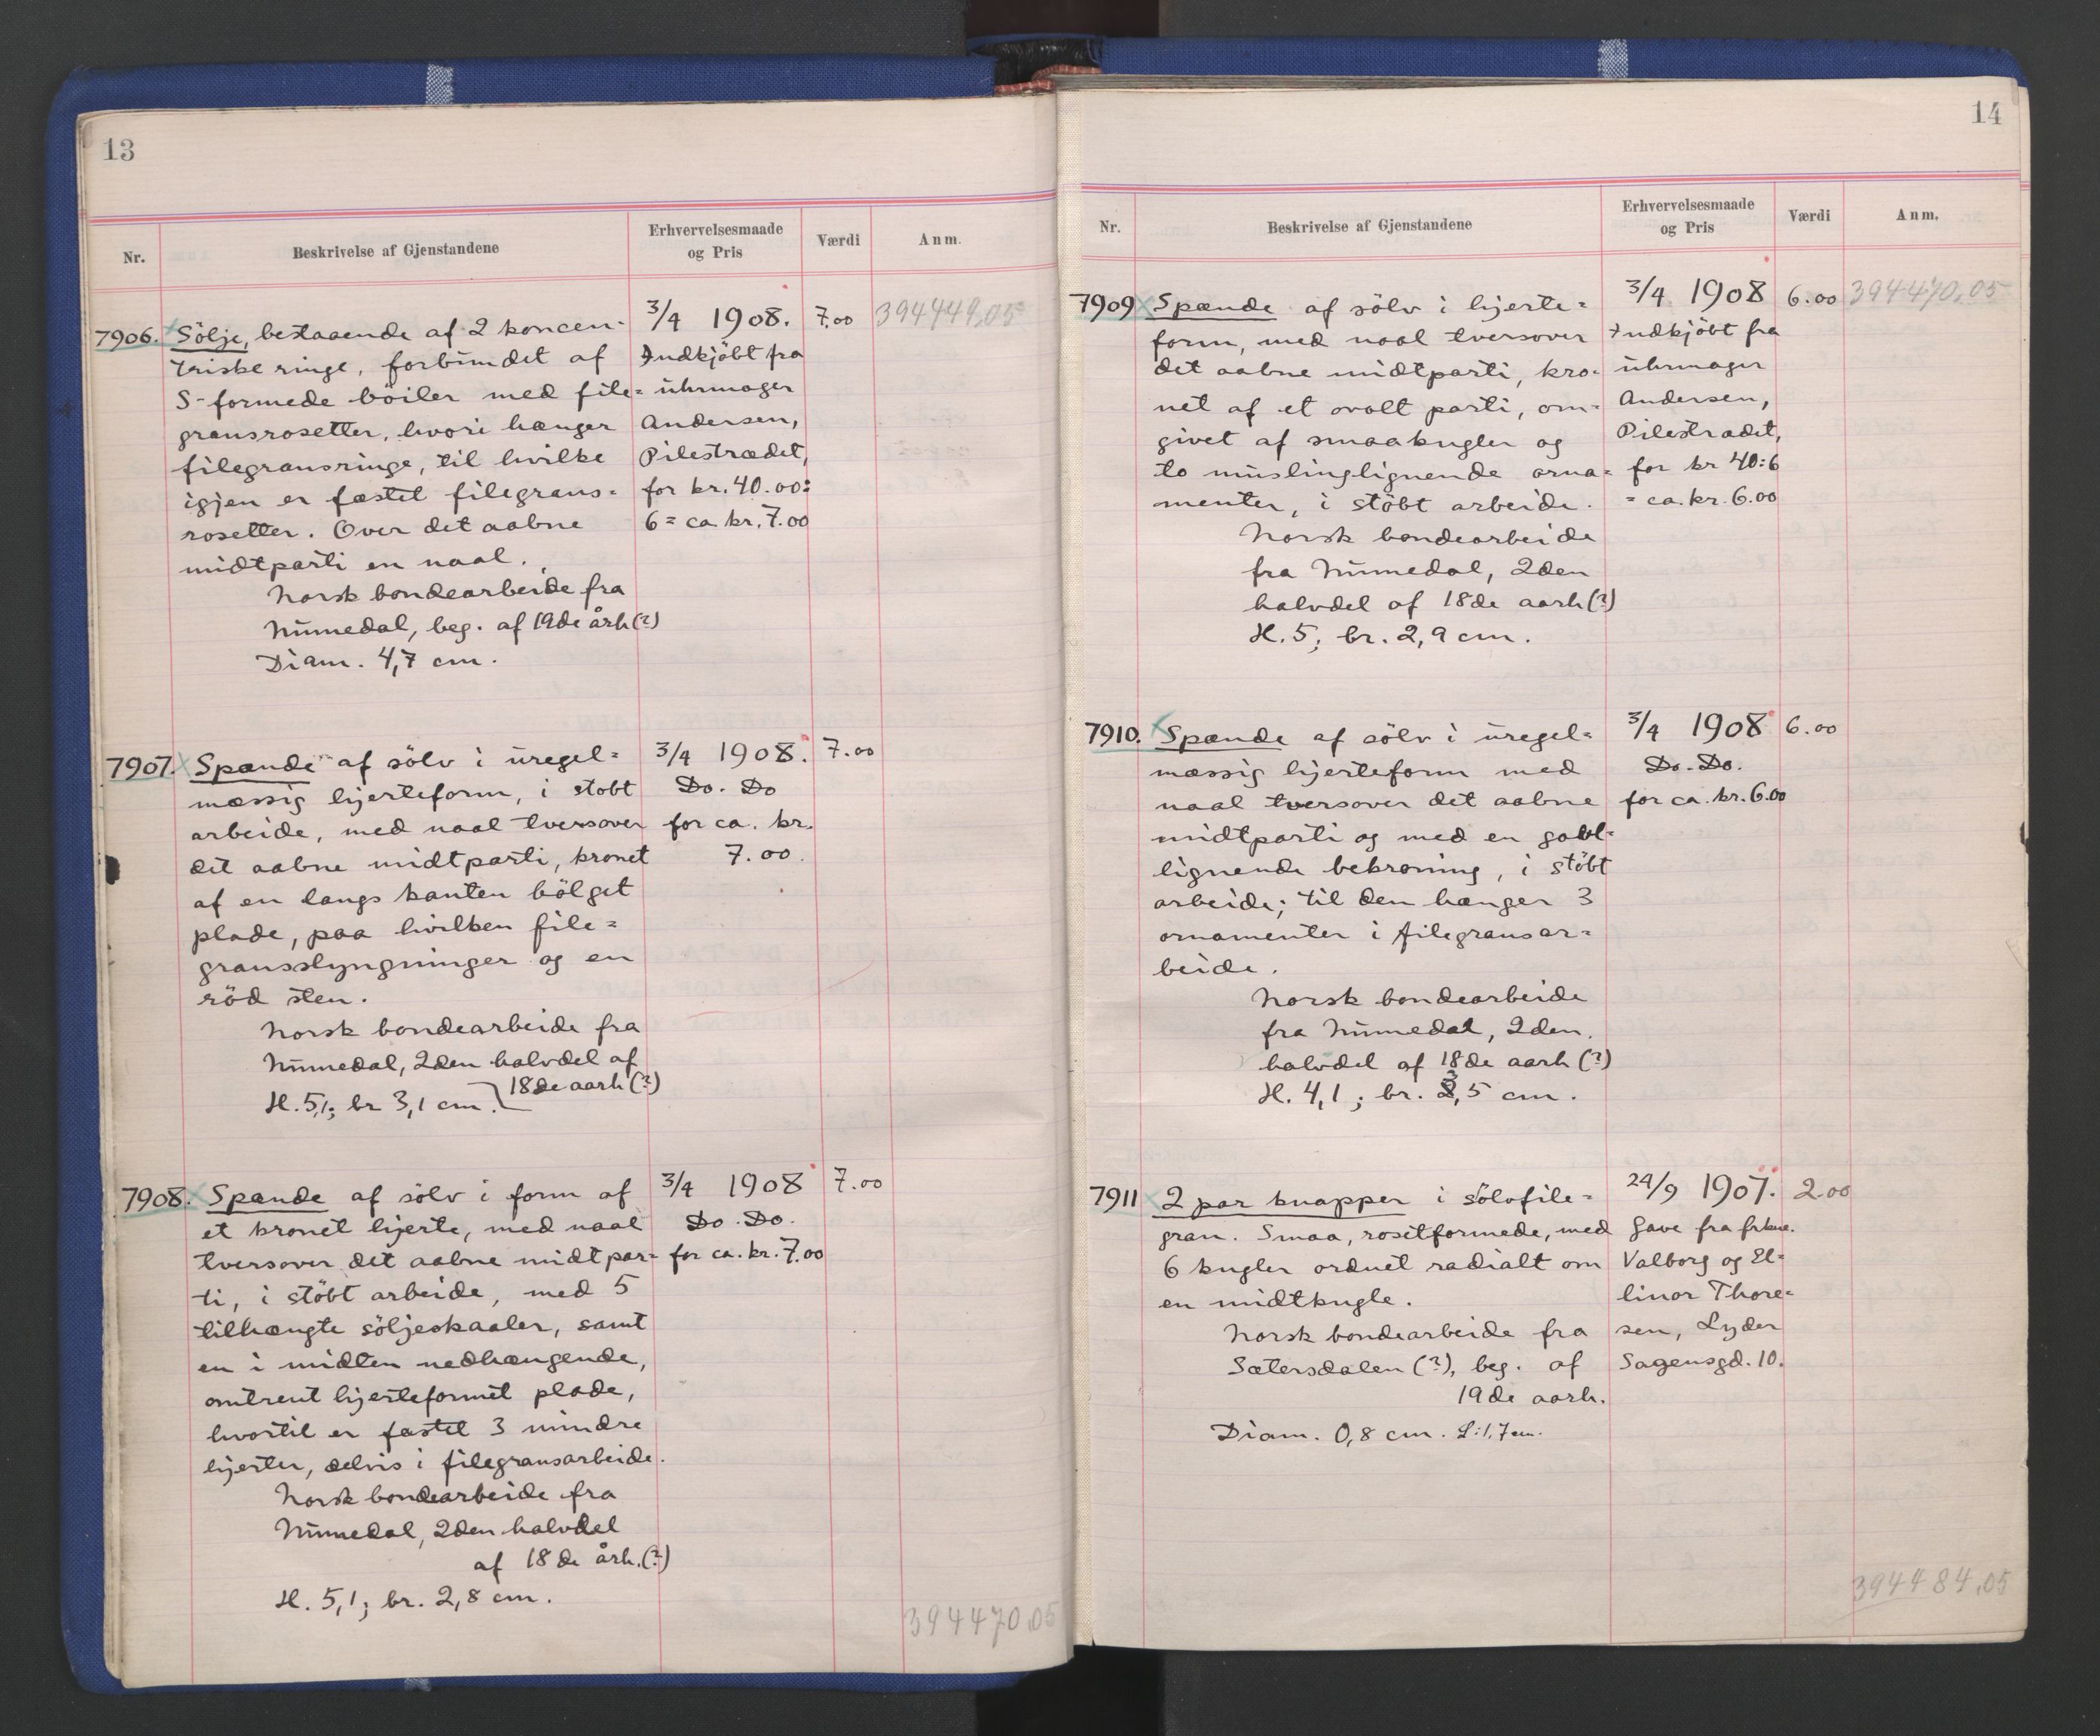 13
Nr.
Beskrivelse af Gjenstandene
Erhvervelsesmaade
og Pris
Værdi
Anm.
7906.
Sölje, bestaaende af 2 koncen-
triske ringe, forbundet af
S-formede böiler med file=
gransrosetter, hvori hænger
filegransringe, til hvilke
igjen er fæstet filegrans=
rosetter. Over det aabne
midtparti en naal.
Norsk bondearbeide fra
Numedal, beg. af 19de årh (?)
Diam. 4,7 cm.
3/4 1908.
Indkjöbt fra
uhrmager
Andersen,
Pilestrædet,
for kr. 40.00:
6 = ca kr. 7.00
7.00
394449,05
7907.
Spænde af sölv i uregel=
mæssig hjerteform, i stöbt
arbeide, med naal tversover
det aabne midtparti, kronet
af en langs kanten bölget
plade, paa hvilken file=
gransslyngninger og en
röd sten.
Norsk bondearbeide fra
Numedal, 2den halvdel af
18de aarh (?)
H. 5,1; br 3,1 cm.
3/4 1908.
Do. Do
for ca. kr.
7.00.
7.00
7908.
Spænde af sölv i form af
et kronet hjerte, med naal
tversover det aabne midtpar=
ti, i stöbt arbeide, med 5
tilhængte söljeskaaler, samt
en i midten nedhængende,
omtrent hjerteformet plade,
hvortil er fæstet 3 mindre
hjerter, delvis i filegransarbeide.
Norsk bondearbeide fra
Numedal, 2den halvdel
af 18de årh. (?)
H. 5,1; br. 2,8 cm.
3/4 1908
Do. Do.
for ca. kr. 7.00
7.00
394470.05
14
Nr.
Beskrivelse af Gjenstandene
Erhvervelsesmaade
og Pris
Værdi
Anm.
7909
Spænde af sölv i hjerte=
form, med naal tversover
det aabne midtparti, kro-
net af et ovalt parti, om=
givet af smaakugler og
to muslinglignende orna=
menter, i stöbt arbeide.
Norsk bondearbeide
fra Numedal, 2den
halvdel af 18de aarh (?)
H. 5; br. 2,9 cm.
3/4 1908
Indkjöbt fra
uhrmager
Andersen,
Pilestrædet,
for kr 40:6
= ca. kr. 6.00
6.00
394470.05
7910.
Spænde af sölv i uregel=
mæssig hjerteform med
naal tversover det aabne
midtparti og med en gavl=
lignende bekroning, i stöbt
arbeide; til den hænger 3
ornamenter i filegransar=
beide.
Norsk bondearbeide
fra Numedal, 2den
halvdel af 18de aarh (?)
H. 4,1; br. 3,5 cm.
3/4 1908
Do. Do.
for ca. kr. 6.00
6.00
7911
2 par knapper i sölvfile=
gran. Smaa, rosetformede, med
6 kugler ordnet radialt om
en midtkugle.
Norsk bondearbeide fra
Sætersdalen (?), beg. af
19de aarh.
Diam. 0,8 cm. L: 1,7 cm.
24/9 1907.
Gave fra frkne.
Valborg og El=
linor Thore=
sen, Lyder
Sagensgd. 10.
2.00
394484.05